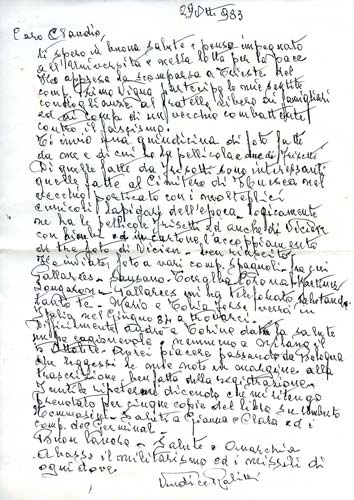 29 Ott. 983
Caro Claudio,
ti spero in buona salute e penso impegnato
all'Università e nella lotta per la pace
Ho appreso la scomparsa a Trieste del
comp. Primo Vigna partecipo le mie sentite
condoglianze al fratello Libero ai famigliari
ed ai comp. di un vecchio combattente
contro il fascismo.
Ti invio una quindicina di foto fatte
da me e di cui ho la pellicola e due di Frisetti
Di quelle fatte da Frisetti sono interessanti
quelle fatte al Cimitero di Huesca nel
vecchio porticato con i molteplici
lapidari dell'epoca, logicamente
ne ha le pellicole Frisetti ed anche di Vicien
con ed un cartone, l'accoppiamento
di tre foto di Vicien
Ho inviato foto a vari comp. spagnoli fra cui
Gallarces - Lausano -
- Gallarces mi ha telefonato
tanto te - Mario e forse verrà in
Italia nel Giugno 84 a trovarci.
Difficilmente andrò a Torino data la salute
e nemmeno a Milano il
Ottobre - Avrei piacere passando da Bologna
che leggessi le mie note in margine alla
trascrizione, ben fatta della registrazione.
Inutile ripetermi dicendo che mi ritengo
prenotato per cinque copie del libro su Umberto
Tommasini - Saluti a Gianna e Clara ed i
comp. del Germinal -
Buon lavoro - Salute e Anarchia
Abbasso il militarismo ed i missili di
ogni dove